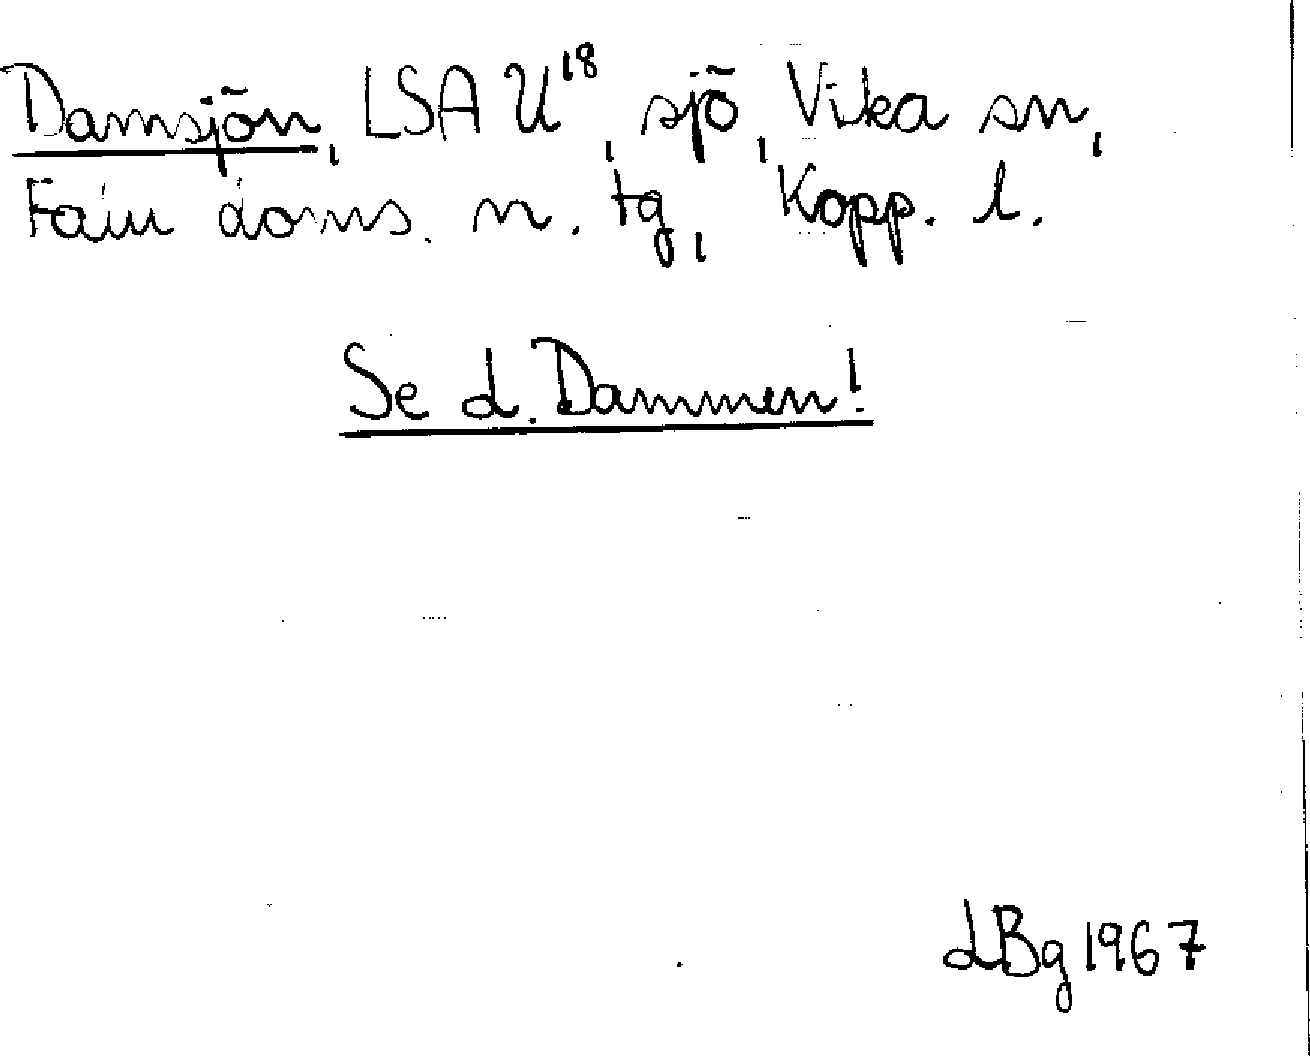 Damsjön, LSA U18, sjö, Vika sn,
Falu doms. n. tg, Kopp. l.
Se d. Dammen!
LBg 1967